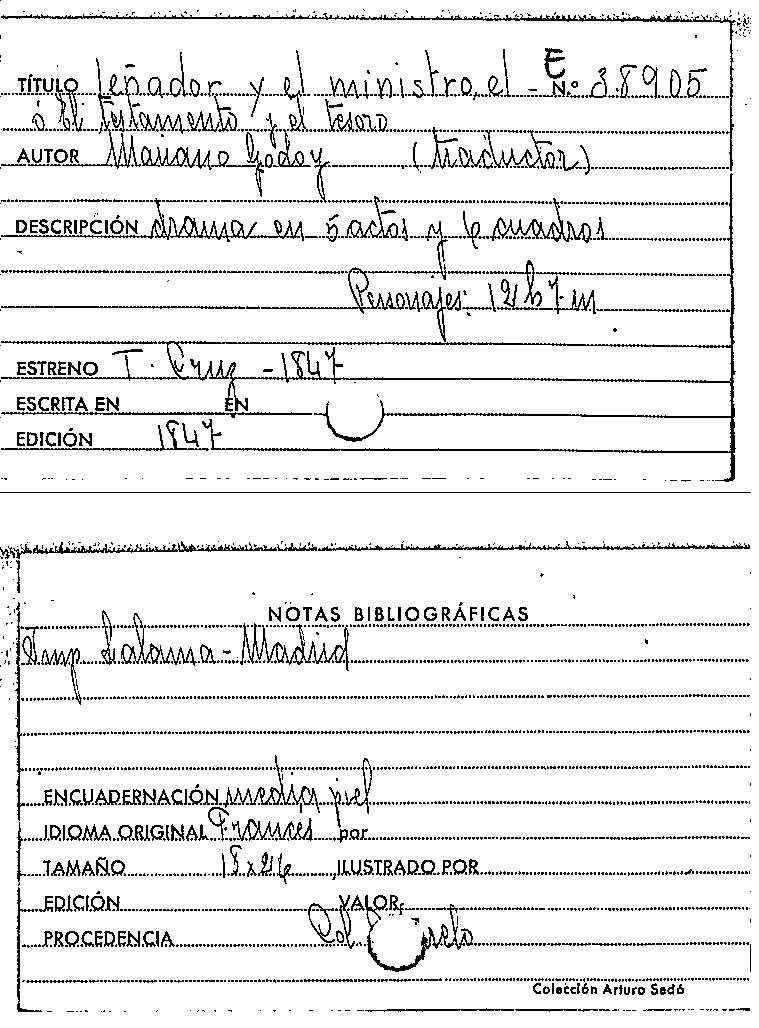 TÍTULO leñador y el ministro, el - E N.º 38905
ó El testamento y el tesoro
AUTOR Mariano Godoy (traductor)
DESCRIPCIÓN drama en 5 actos y 6 cuadros
Personajes: 12 h 7 m
ESTRENO T. Cruz - 1847
ESCRITA EN EN
EDICIÓN 1847
NOTAS BIBLIOGRÁFICAS
Imp Lalama - Madrid
ENCUADERNACIÓN media piel
IDIOMA ORIGINAL Frances por
TAMAÑO 18 x 26 ILUSTRADO POR
EDICIÓN VALOR
PROCEDENCIA Col
Colección Arturo Sedó